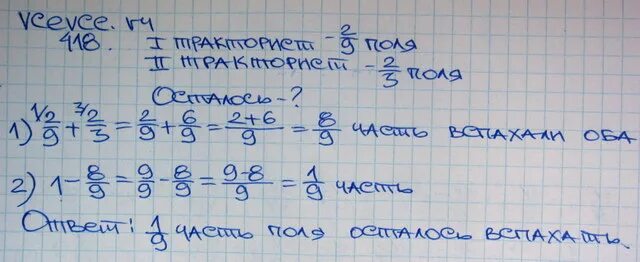 vcevce.ru
418. I тракторист - 2/9 поля
II тракторист - 2/3 поля
Осталось - ?
1) ¹⁾2/9 + ³⁾2/3 = 2/9 + 6/9 = 2+6/9 = 8/9 часть вспахали оба
2) 1 - 8/9 = 9/9 - 8/9 = 9-8/9 = 1/9 часть
Ответ: 1/9 часть поля осталось вспахать.